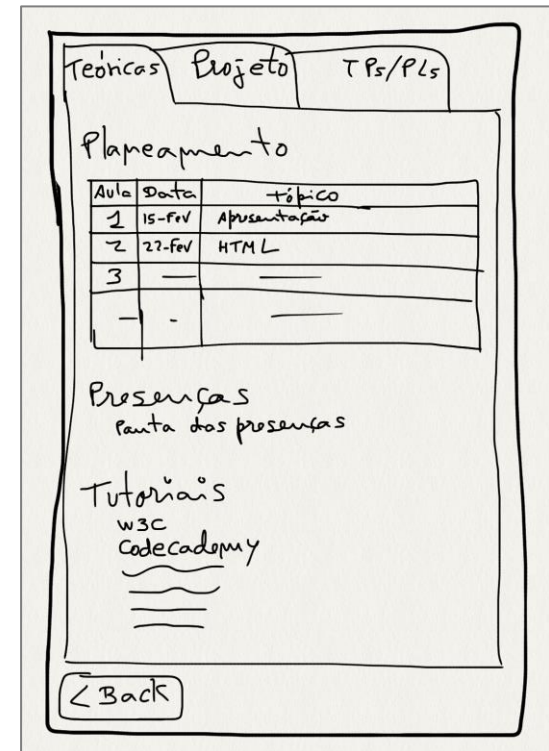 Teóricas Projeto TPs/PLs
Planeamento
Aula Data tópico
1 15-Fev Apresentação
2 22-Fev HTML
3
Presenças
Pauta das presenças
Tutoriais
W3C
Codecademy
< Back